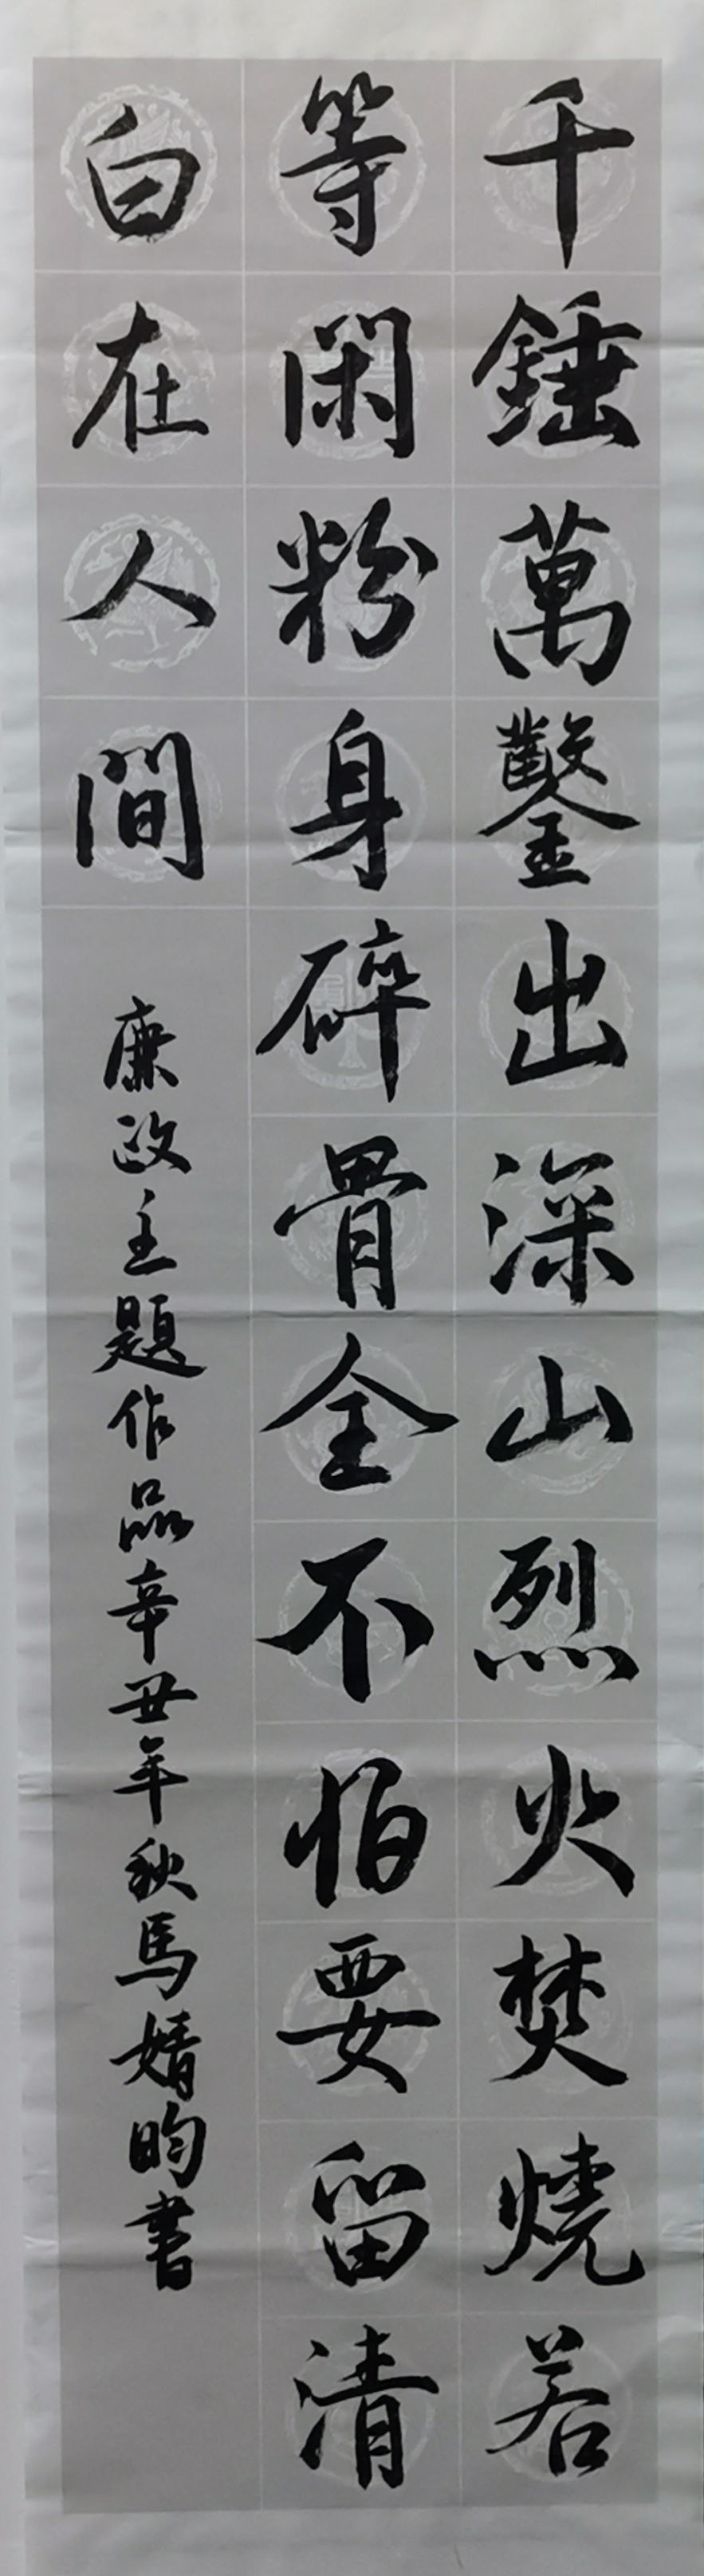 千錘萬鑿出深山烈火焚燒若
等閑粉身碎骨全不怕要留清
白在人間
廉政主題作品辛丑年秋馬婧昀書